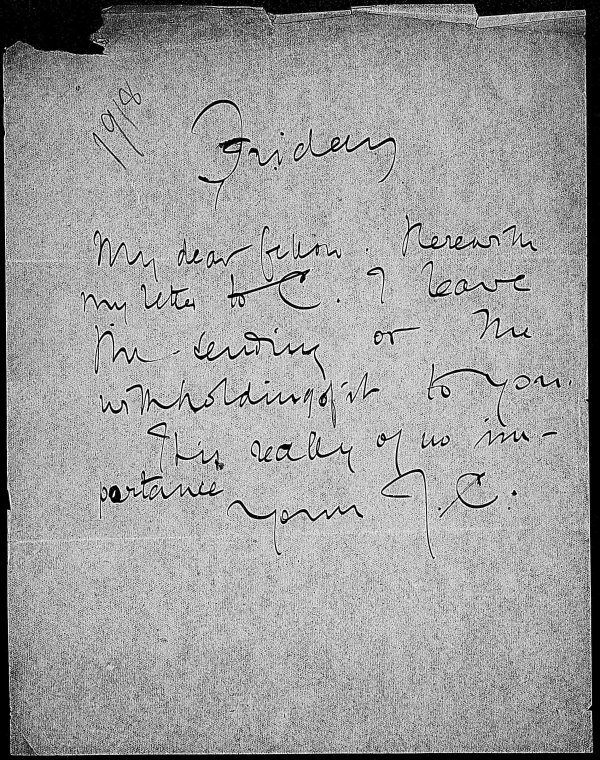 1918
Friday
My dear fellow. Herewith
my letter to C. I leave
the sending or the
withholding of it to you.
It is really of no im-
portance
Yours J. C.